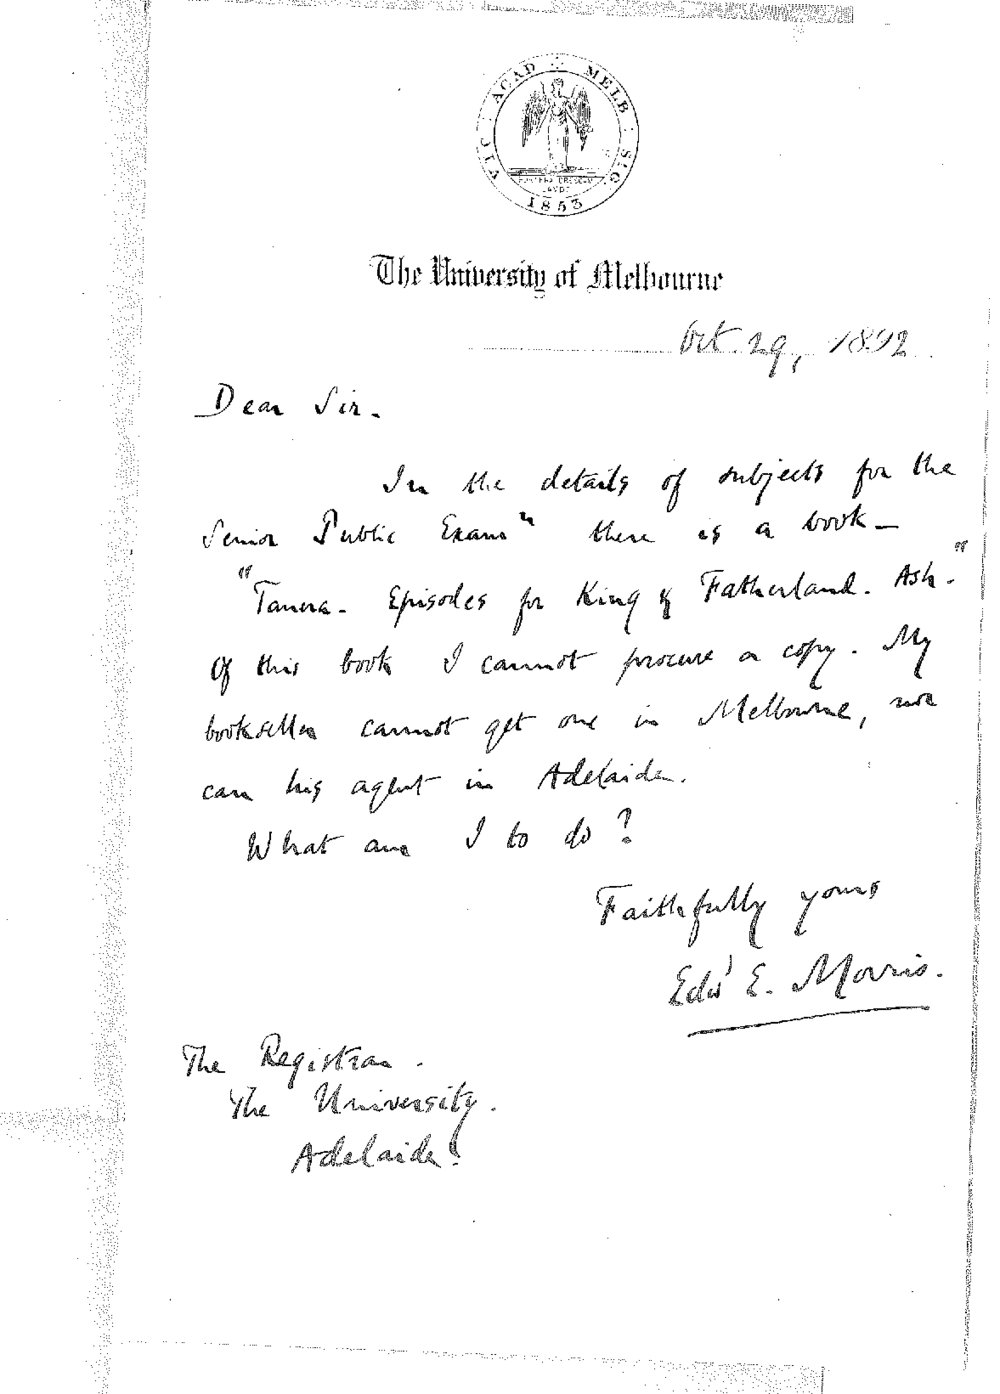 VIC ACAD MELB SIG.
1853
The University of Melbourne
Oct 29, 1892
Dear Sir.
In the details of subjects for the
Senior Public Examn there is a book—
"Tanera. Episodes for King & Fatherland. Ash."
Of this book I cannot procure a copy. My
bookseller cannot get one in Melbourne, nor
can his agent in Adelaide.
What am I to do?
Faithfully yours
Edwd E. Morris.
The Registrar.
The University.
Adelaide.